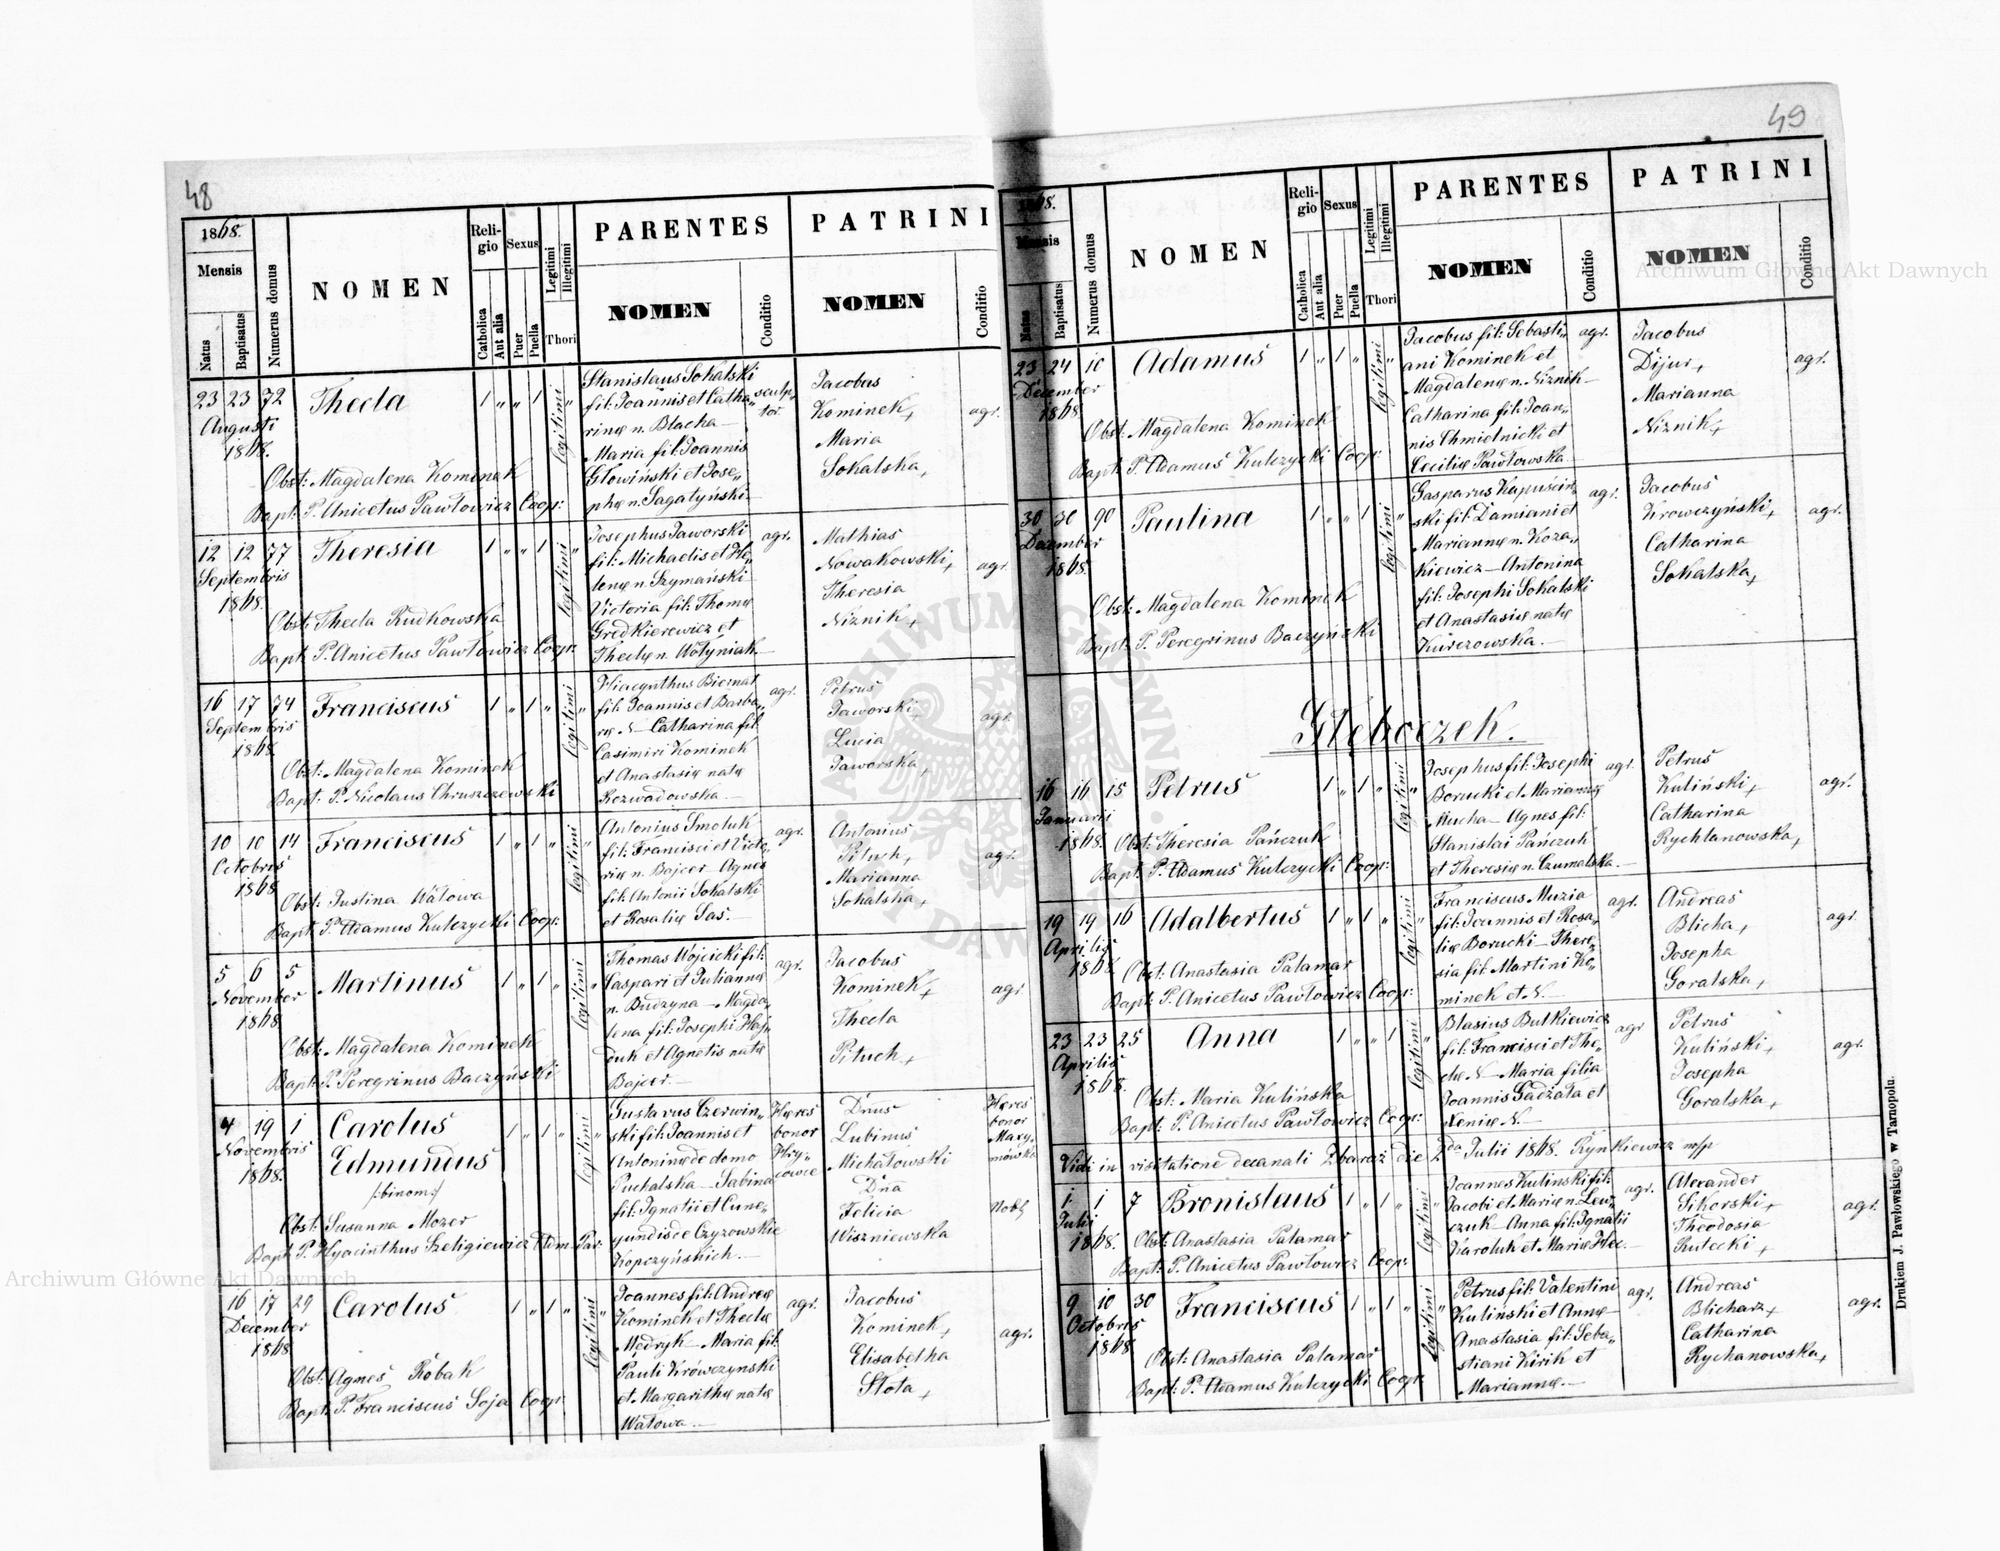 48
1868.
Mensis
Natus
Baptisatus
Numerus domus
NOMEN
Religio
Catholica
Aut alia
Sexus
Puer
Puella
Legitimi
Illegitimi
Thori
PARENTES
NOMEN
Conditio
PATRINI
NOMEN
Conditio
23 23 72 Thecla 1 „ „ 1 legitimi „
Augusti
1868.
Obst: Magdalena Kominek
Bapt: P. Anicetus Pawłowicz Coop:
Stanislaus Sokalski
fil: Joannis et Catha„
rinę n. Blacha —
Maria fil: Joannis
Głowiński et Jose„
phę n. Sagatyński —
sculp„
tor.
Jacobus
Kominek, +
Maria
Sokalska,
agr.
12 12 77 Theresia 1 „ „ 1 legitimi „
Septembris
1868.
Obst: Thecla Rudkowska
Bapt: P. Anicetus Pawłowicz Coop:
Josephus Jaworski
fil: Michaelis et He„
lenę n. Szymański —
Victoria fil: Thomę
Gredkierewicz et
Theclę n. Wołyniak. —
agr.
Mathias
Nowakowski, +
Theresia
Niznik, +
agr.
16 17 74 Franciscus 1 „ 1 „ legitimi „
Septembris
1868.
Obst: Magdalena Kominek
Bapt: P. Nicolaus Chruszczewski
Hiacynthus Biernat
fil: Joannis et Barba„
rę N — Catharina fil:
Casimiri Kominek
et Anastasię natę
Rozwadowska —
agr.
Petrus
Jaworski,
Lucia
Jaworska, +
agr.
10 10 14 Franciscus 1 „ 1 „ legitimi „
Octobris
1868
Obst: Justina Wątowa
Bapt: P. Adamus Kulczycki Coop:
Antonius Smoluk
fil: Francisci et Victo„
rię n. Bojcer Agnes
fil: Antonii Sokalski
et Rosalię Sas. —
agr.
Antonius
Pituch, +
Marianna
Sokalska, +
agr.
5 6 5 Martinus 1 „ 1 „ legitimi „
November
1868.
Obst: Magdalena Kominek
Bapt: P. Peregrinus Baczyński
Thomas Wojcicki fil:
Caspari et Juliannę
n. Budzyna — Magda„
lena fil: Josephi Haj„
duk et Agnetis natę
Bojcer. —
agr.
Jacobus
Kominek, +
Thecla
Pituch, +
agr.
4 19 1 Carolus 1 „ 1 „ legitimi „
Novembris
1868.
Edmundus
/:binom:/
Obst: Susanna Mozer
Bapt: P. Hyacinthus Szeligiewicz Adm. Par.
Gustavus Czerwiń„
ski fil: Joannis et
Antoninę de domo
Puchalska — Sabina
fil: Ignatii et Cune„
gundis de Czyzowskie
Kopczyńskich. —
Hęres
bonor
Hry„
cowce
Dnus
Lubinus
Michałowski
Dna
Felicia
Wiszniewska
Hęres
bonor
Maxy„
mówka
Nobl
16 17 29 Carolus 1 „ 1 „ legitimi „
December
1868
Obst: Agnes Robak
Bapt: P. Franciscus Soja Coop:
Joannes fil: Andreę
Kominek et Theclę
Mędryk — Maria fil:
Pauli Krówczynski
et Margarithę natę
Wątowa. —
agr.
Jacobus
Kominek, +
Elisabetha
Słota, +
agr.
49
1868.
Mensis
Natus
Baptisatus
Numerus domus
NOMEN
Religio
Catholica
Aut alia
Sexus
Puer
Puella
Legitimi
Illegitimi
Thori
PARENTES
NOMEN
Conditio
PATRINI
NOMEN
Conditio
23 24 10 Adamus 1 „ 1 „ legitimi „
December
1868.
Obst: Magdalena Kominek
Bapt: P. Adamus Kulczycki Coop:
Jacobus fil: Sebasti„
ani Kominek et
Magdalenę n. Niznik —
Catharina fil: Joan„
nis Chmielnicki et
Cecilię Pawłowska —
agr.
Jacobus
Dijur, +
Marianna
Niznik, +
agr.
30 30 90 Paulina 1 „ „ 1 legitimi „
December
1868.
Obst: Magdalena Kominek
Bapt: P. Peregrinus Baczyński
Gasparus Kapuściń„
ski fil: Damiani et
Mariannę n. Koza„
kiewicz — Antonina
fil: Josephi Sokalski
et Anastasię natę
Kurczowska. —
agr.
Jacobus
Krowczyński, +
Catharina
Sokalska, +
agr.
Głęboczek.
16 16 15 Petrus 1 „ 1 „ legitimi „
Januarii
1868.
Obst: Theresia Pańczuk
Bapt: P. Adamus Kulczycki Coop:
Josephus fil: Josephi
Borucki et Mariannę
Mucha — Agnes fil:
Stanislai Pańczuk
et Theresię n. Czumalska. —
agr.
Petrus
Kuliński, +
Catharina
Rychlanowska, +
agr.
19 19 16 Adalbertus 1 „ 1 „ legitimi „
Aprilis
1868.
Obst: Anastasia Palamar
Bapt: P. Anicetus Pawłowicz Coop:
Franciscus Muzia
fil: Joannis et Rosa„
lię Borucki — There„
sia fil: Martini Ko„
minek et N. —
agr.
Andreas
Blicha, +
Josepha
Goralska, +
agr.
23 23 25 Anna 1 „ „ 1 legitimi „
Aprilis
1868.
Obst: Maria Kulińska
Bapt: P. Anicetus Pawłowicz Coop:
Blasius Butkiewicz
fil: Francisci et The„
clę N — Maria filia
Joannis Gadzała et
Xenię N. —
agr
Petrus
Kuliński, +
Josepha
Goralska, +
agr.
Vidi in visitatione decanali Zbaraż die 2da Julii 1868. Rynkiewicz m/p
1 1 7 Bronislaus 1 „ 1 „ legitimi „
Julii
1868.
Obst: Anastasia Palamar
Bapt: P. Anicetus Pawłowicz Coop:
Joannes Kulinski fil:
Jacobi et Marię n. Lew„
czuk — Anna fil: Ignatii
Karoluk et Marię Hec. —
agr.
Alexander
Sikorski, +
Theodosia
Rutecki, +
agr.
9 10 30 Franciscus 1 „ 1 „ legitimi „
Octobris
1868
Obst: Anastasia Palamar
Bapt: P. Adamus Kulczycki Coop:
Petrus fil: Valentini
Kuliński et Annę —
Anastasia fil: Seba„
stiani Kirik et
Mariannę. —
agr.
Andreas
Blicharz, +
Catharina
Rychanowska, +
agr.
Drukiem J. Pawłowskiego w Tarnopolu.
Archiwum Główne Akt Dawnych
Archiwum Główne Akt Dawnych
ARCHIWUM GŁÓWNE AKT DAWNYCH